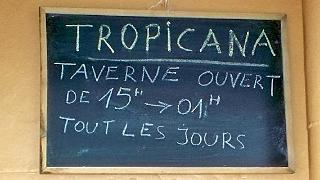 TROPICANA
TAVERNE OUVERT
DE 15H → 01H
TOUT LES JOURS